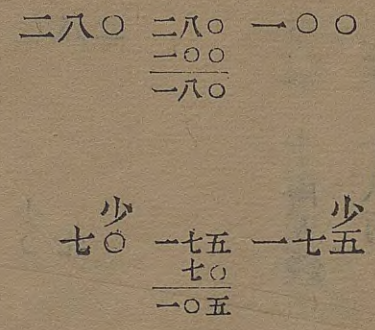 二八〇 二八〇 一〇〇
一〇〇
一八〇
少 少
七〇 一七五 一七五
七〇
一〇五